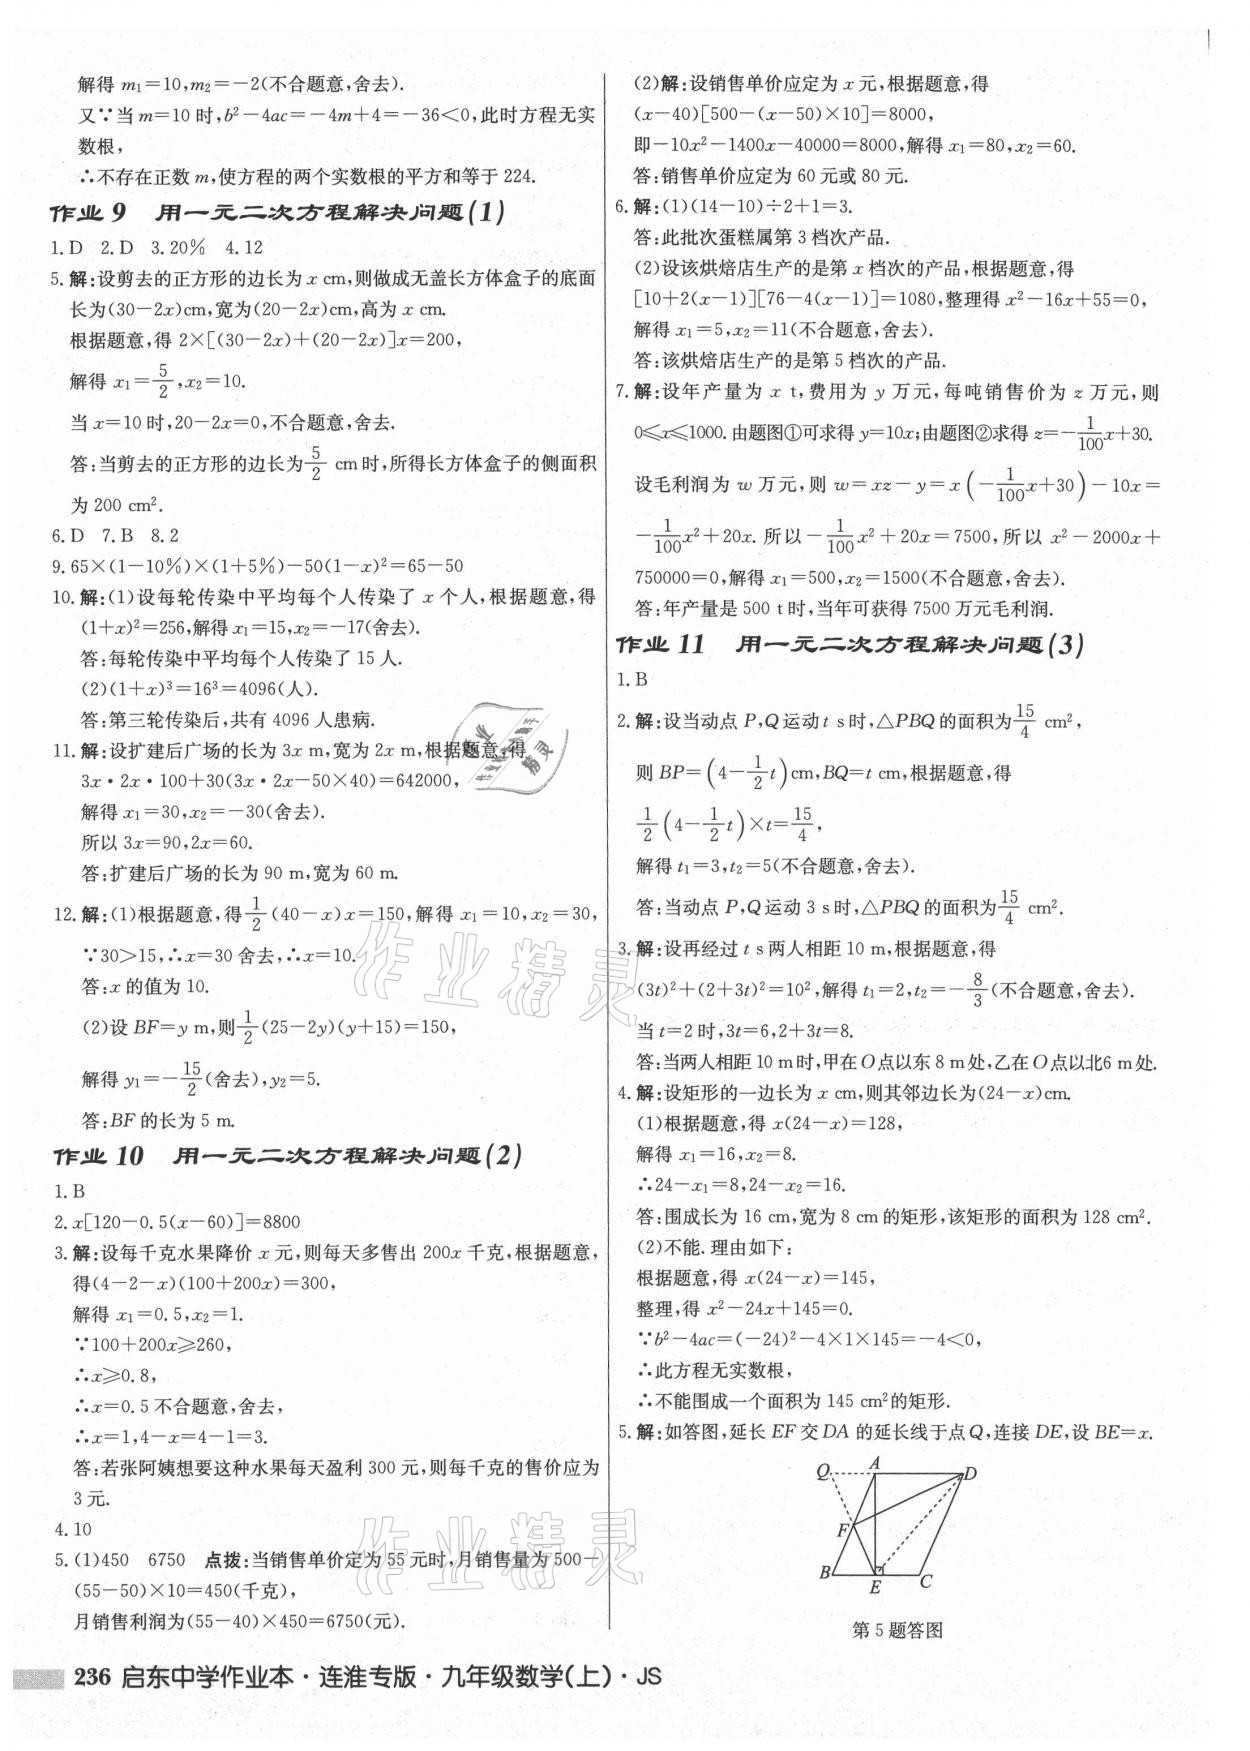 解得 m₁=10,m₂=-2(不合题意,舍去).
又∵当 m=10 时,b²-4ac=-4m+4=-36<0,此时方程无实
数根,
∴不存在正数 m,使方程的两个实数根的平方和等于 224.
作业 9 用一元二次方程解决问题(1)
1. D 2. D 3. 20% 4. 12
5. 解:设剪去的正方形的边长为 x cm,则做成无盖长方体盒子的底面
长为(30-2x)cm,宽为(20-2x)cm,高为 x cm.
根据题意,得 2×[(30-2x)+(20-2x)]x=200,
解得 x₁=5/2,x₂=10.
当 x=10 时,20-2x=0,不合题意,舍去.
答:当剪去的正方形的边长为5/2 cm时,所得长方体盒子的侧面积
为 200 cm².
6. D 7. B 8. 2
9. 65×(1-10%)×(1+5%)-50(1-x)²=65-50
10. 解:(1)设每轮传染中平均每个人传染了 x 个人,根据题意,得
(1+x)²=256,解得 x₁=15,x₂=-17(舍去).
答:每轮传染中平均每个人传染了 15 人.
(2)(1+x)³=16³=4096(人).
答:第三轮传染后,共有 4096 人患病.
11. 解:设扩建后广场的长为 3x m,宽为 2x m,根据题意,得
3x·2x·100+30(3x·2x-50×40)=642000,
解得 x₁=30,x₂=-30(舍去).
所以 3x=90,2x=60.
答:扩建后广场的长为 90 m,宽为 60 m.
12. 解:(1)根据题意,得1/2(40-x)x=150,解得 x₁=10,x₂=30,
∵30>15,∴x=30 舍去,∴x=10.
答:x 的值为 10.
(2)设 BF=y m,则1/2(25-2y)(y+15)=150,
解得 y₁=-15/2(舍去),y₂=5.
答:BF 的长为 5 m.
作业 10 用一元二次方程解决问题(2)
1. B
2. x[120-0.5(x-60)]=8800
3. 解:设每千克水果降价 x 元,则每天多售出 200x 千克,根据题意,
得(4-2-x)(100+200x)=300,
解得 x₁=0.5,x₂=1.
∵100+200x≥260,
∴x≥0.8,
∴x=0.5 不合题意,舍去,
∴x=1,4-x=4-1=3.
答:若张阿姨想要这种水果每天盈利 300 元,则每千克的售价应为
3 元.
4. 10
5. (1)450 6750 点拨:当销售单价定为 55 元时,月销售量为 500-
(55-50)×10=450(千克),
月销售利润为(55-40)×450=6750(元).
(2)解:设销售单价应定为 x 元,根据题意,得
(x-40)[500-(x-50)×10]=8000,
即-10x²-1400x-40000=8000,解得 x₁=80,x₂=60.
答:销售单价应定为 60 元或 80 元.
6. 解:(1)(14-10)÷2+1=3.
答:此批次蛋糕属第 3 档次产品.
(2)设该烘焙店生产的是第 x 档次的产品,根据题意,得
[10+2(x-1)][76-4(x-1)]=1080,整理得 x²-16x+55=0,
解得 x₁=5,x₂=11(不合题意,舍去).
答:该烘焙店生产的是第 5 档次的产品.
7. 解:设年产量为 x t,费用为 y 万元,每吨销售价为 z 万元,则
0≤x≤1000. 由题图①可求得 y=10x;由题图②求得 z=-1/100x+30.
设毛利润为 w 万元,则 w=xz-y=x(-1/100x+30)-10x=
-1/100x²+20x. 所以-1/100x²+20x=7500,所以 x²-2000x+
750000=0,解得 x₁=500,x₂=1500(不合题意,舍去).
答:年产量是 500 t 时,当年可获得 7500 万元毛利润.
作业 11 用一元二次方程解决问题(3)
1. B
2. 解:设当动点 P,Q 运动 t s 时,△PBQ 的面积为15/4 cm²,
则 BP=(4-1/2t)cm,BQ=t cm,根据题意,得
1/2(4-1/2t)×t=15/4,
解得 t₁=3,t₂=5(不合题意,舍去).
答:当动点 P,Q运动 3 s时,△PBQ 的面积为15/4 cm².
3. 解:设再经过 t s 两人相距 10 m,根据题意,得
(3t)²+(2+3t)²=10²,解得 t₁=2,t₂=-8/3(不合题意,舍去).
当 t=2 时,3t=6,2+3t=8.
答:当两人相距 10 m时,甲在 O点以东 8 m处,乙在 O点以北6 m处.
4. 解:设矩形的一边长为 x cm,则其邻边长为(24-x)cm.
(1)根据题意,得 x(24-x)=128,
解得 x₁=16,x₂=8.
∴24-x₁=8,24-x₂=16.
答:围成长为 16 cm,宽为 8 cm的矩形,该矩形的面积为 128 cm².
(2)不能. 理由如下:
根据题意,得 x(24-x)=145,
整理,得 x²-24x+145=0.
∵b²-4ac=(-24)²-4×1×145=-4<0,
∴此方程无实数根,
∴不能围成一个面积为 145 cm²的矩形.
5. 解:如答图,延长 EF 交 DA 的延长线于点 Q,连接 DE,设 BE=x.
Q A D
F
B E C
第 5 题答图
236 启东中学作业本·连淮专版·九年级数学(上)·JS
作业精灵
作业精灵